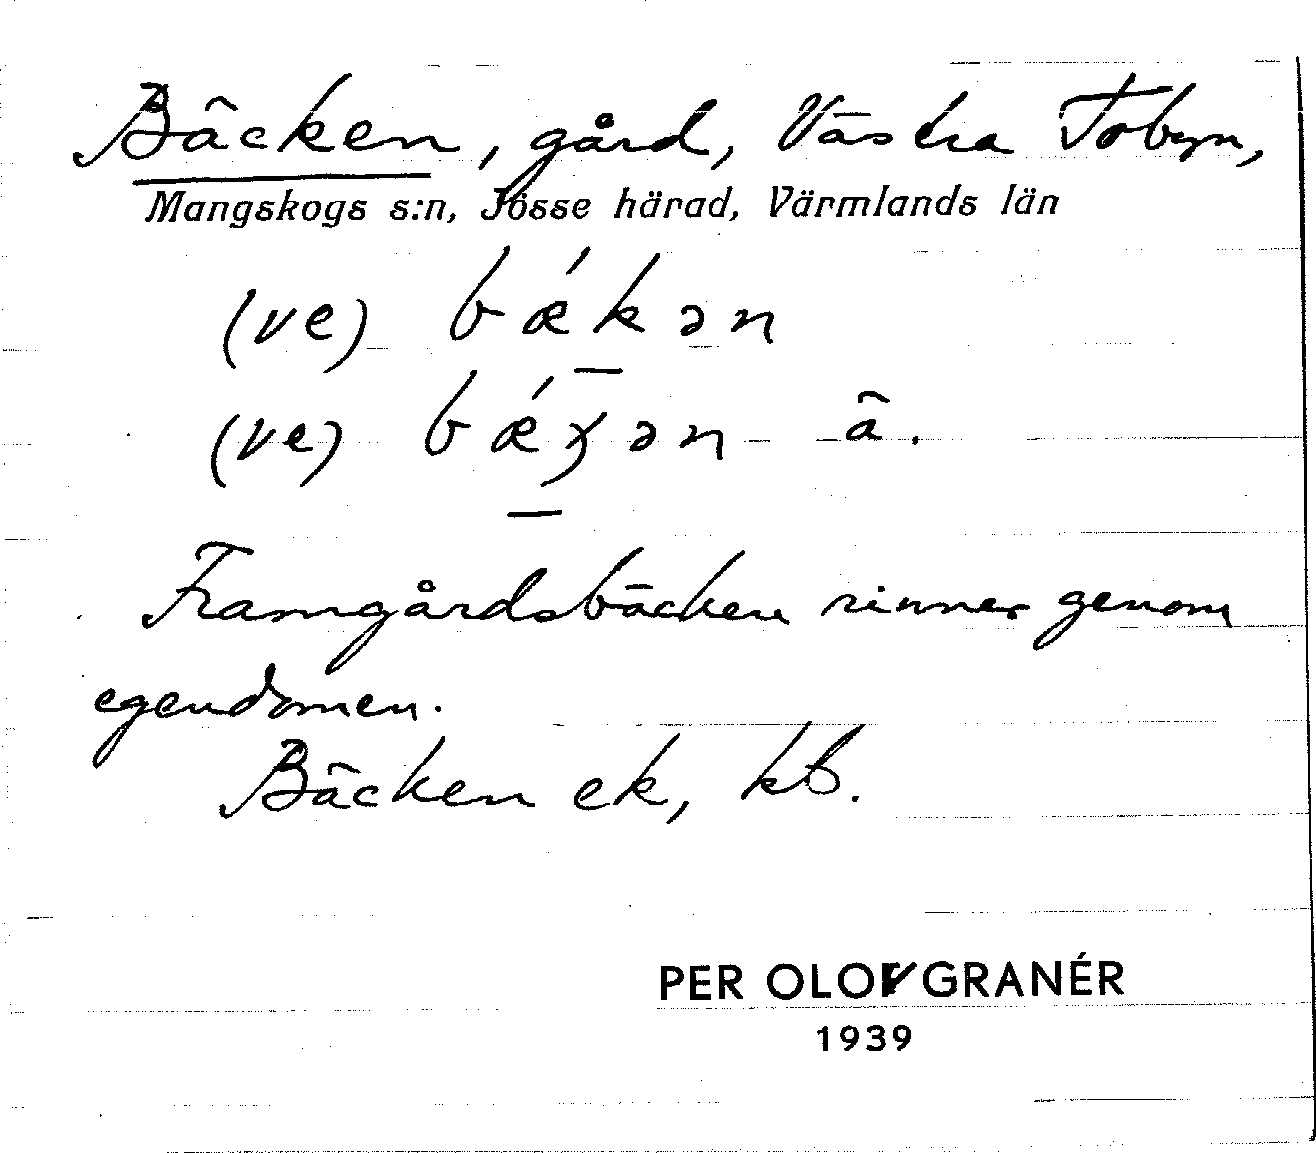 Bäcken, gård, Västra Tobyn,
Mangskogs s:n, Jösse härad, Värmlands län
(ve) bǽk̲ən
(ve) bǽχ̲ən ä.
Framgårdsbäcken rinner genom
egendomen.
Bäcken ek, kb.
PER OLOV GRANÉR
1939